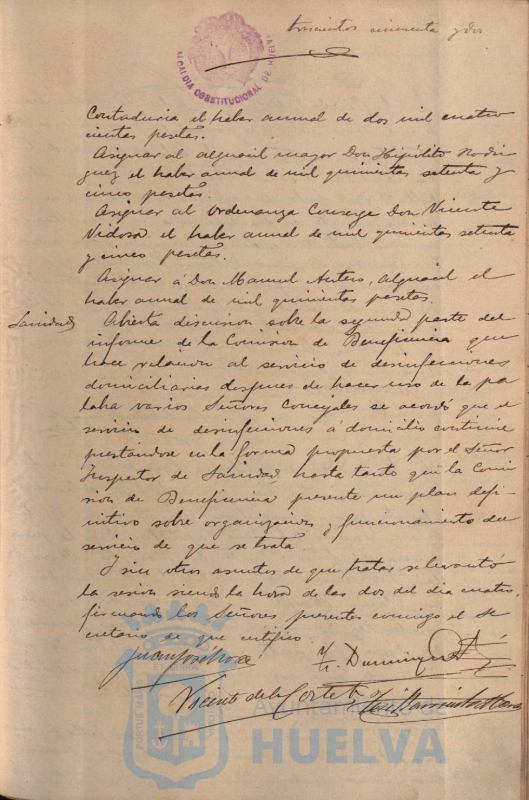 trescientos cincuenta y dos
ALCALDIA CONSTITUCIONAL DE HUELVA
Contaduria el haber annual de dos mil cuatro
cientas pesetas.
Asignar al alguacil mayor Don Hipólito Rodri
guez el haber annual de mil quinientas setenta y
cinco pesetas.
Asignar al Ordenanza Conserge Don Vicente
Vidosa el haber annual de mil quinientas setenta
y cinco pesetas.
Asignar á Don Manuel Antero, alguacil el
haber annual de mil quinientas pesetas.
Sanidad
Abierta discusion sobre la segunda parte del
informe de la Comision de Beneficencia que
hace relacion al servicio de desinfecciones
domiciliarias despues de hacer uso de la pa
labra varios Señores Concejales se acordó que el
servicio de desinfecciones á domicilio continue
prestandose en la forma propuesta por el Señor
Inspector de Sanidad, hasta tanto que la Comi
sion de Beneficencia presente un plan defi
nitivo sobre organizacion y funcionamiento del
servicio de que se trata.
Y sin otros asuntos de que tratar se levantó
la sesion siendo la hora de las dos del dia cuatro,
firmando los Señores presentes conmigo el Se
cretario de que certifico.
Juan José
Dominguez
Vicente de la Corte
PORTUS MARIS
Ayuntamiento de
HUELVA